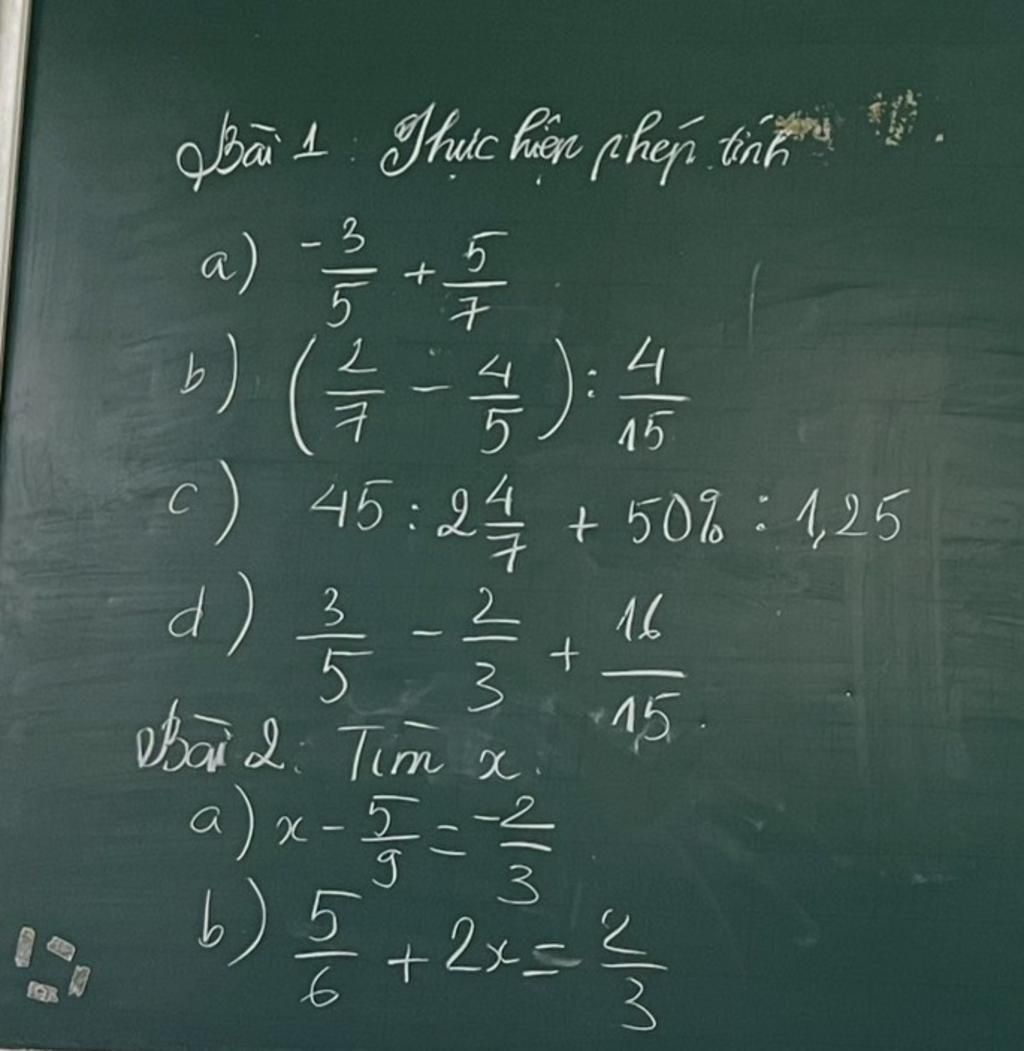 Bài 1: Thực hiện phép tính
a) -3/5 + 5/7
b) (2/7 - 4/5) : 4/15
c) 45 : 2 4/7 + 50% : 1,25
d) 3/5 - 2/3 + 16/15.
Bài 2: Tìm x.
a) x - 5/9 = -2/3
b) 5/6 + 2x = 2/3